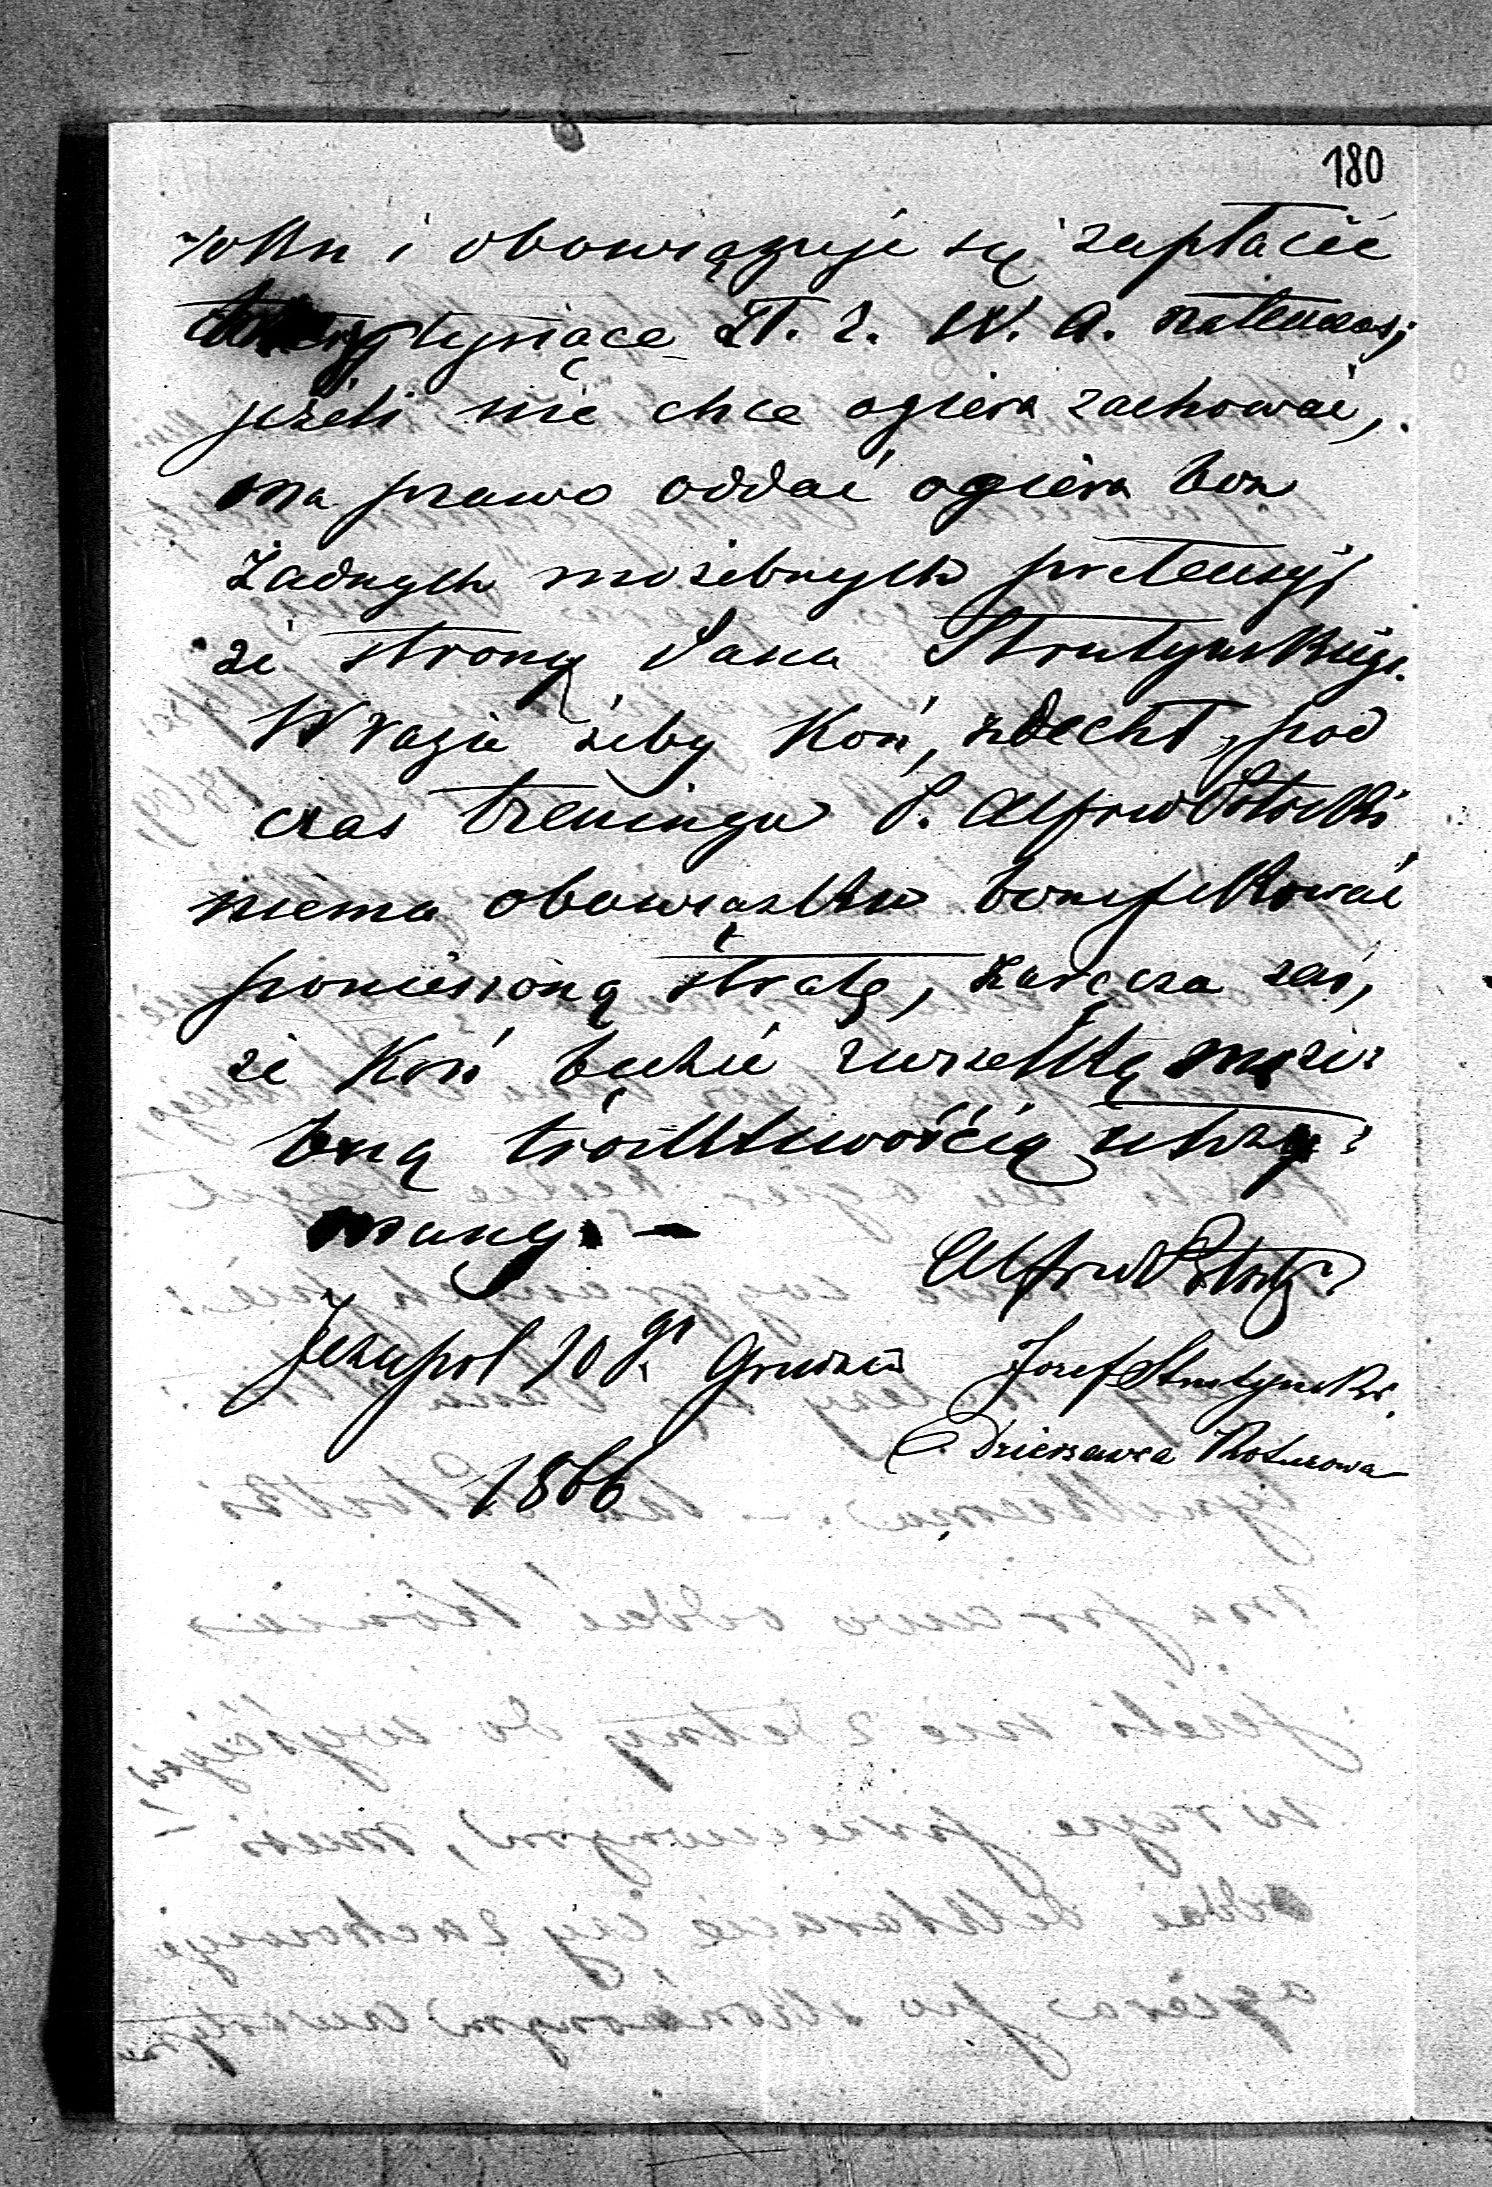 180
roku i obowiązuje się zapłacić
tysiące Zł. r. W. A. natenczas,
jeżeli nie chce ogiera zachować,
ma prawo oddać ogiera bez
żadnych możebnych pretensyj
ze strony Pana Strutyńskiego.
W razie żeby Koń, zdechł, pod
czas treningu P. Alfred Potocki
niema obowiązku bonifikować
poniesioną stratę, zaręcza zaś,
że Koń będzie zwszelką może:
bną troskliwością utrzy:
many. —
Alfred Potocki
Jezupol 10go Grudnia
Jozef Strutynski
Dzierzawca
1866